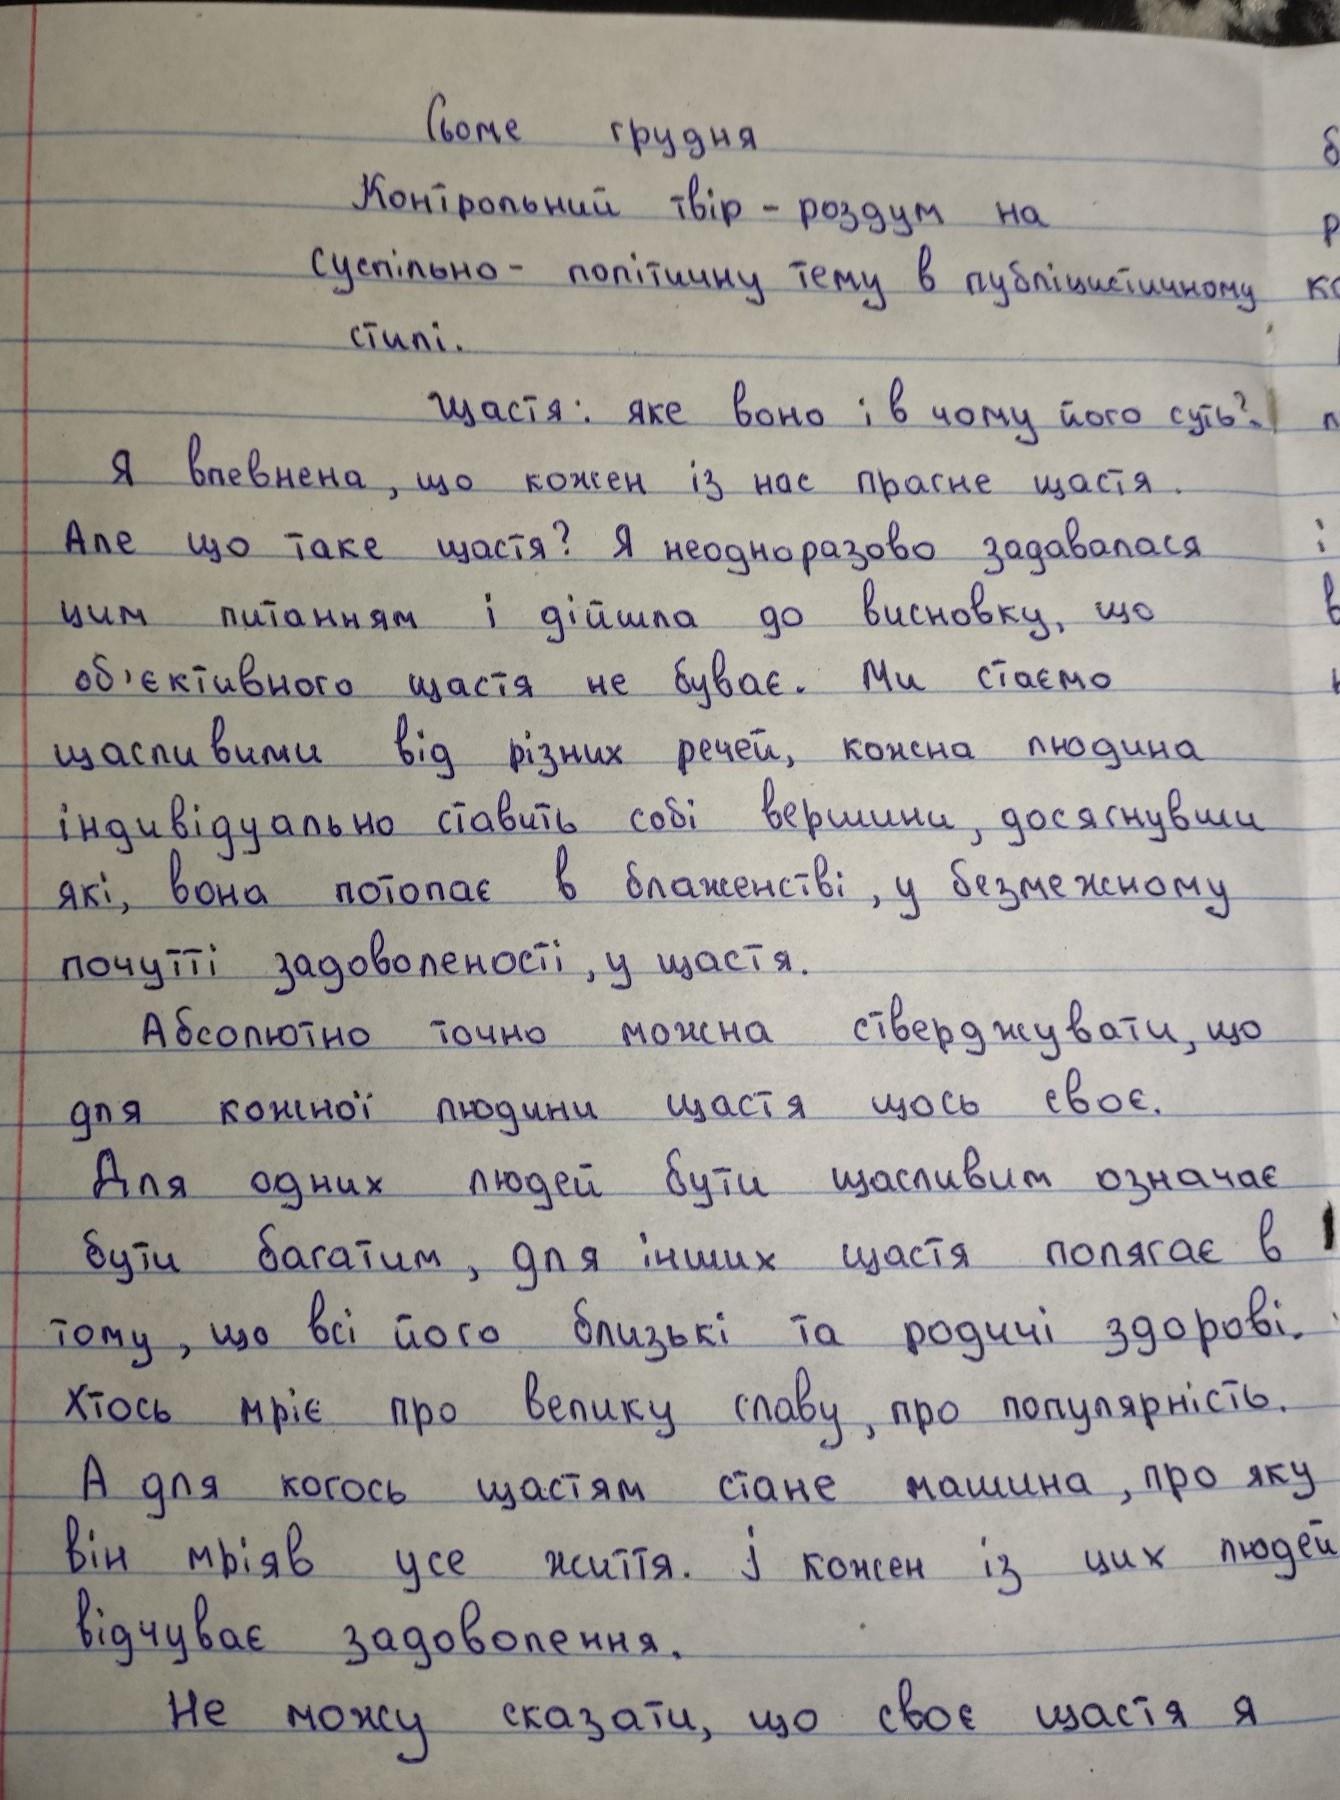 Сьоме грудня
Контрольний твір - роздум на
суспільно - політичну тему в публіцистичному
стилі.
Щастя: яке воно і в чому його суть?.
Я впевнена, що кожен із нас прагне щастя.
Але що таке щастя? Я неодноразово задавалася
цим питанням і дійшла до висновку, що
об'єктивного щастя не буває. Ми стаємо
щасливими від різних речей, кожна людина
індивідуально ставить собі вершини, досягнувши
які, вона потопає в блаженстві, у безмежному
почутті задоволеності, у щастя.
Абсолютно точно можна стверджувати, що
для кожної людини щастя щось своє.
Для одних людей бути щасливим означає
бути багатим, для інших щастя полягає в
тому, що всі його близькі та родичі здорові.
Хтось мріє про велику славу, про популярність.
А для когось щастям стане машина, про яку
він мріяв усе життя. І кожен із цих людей
відчуває задоволення.
Не можу сказати, що своє щастя я